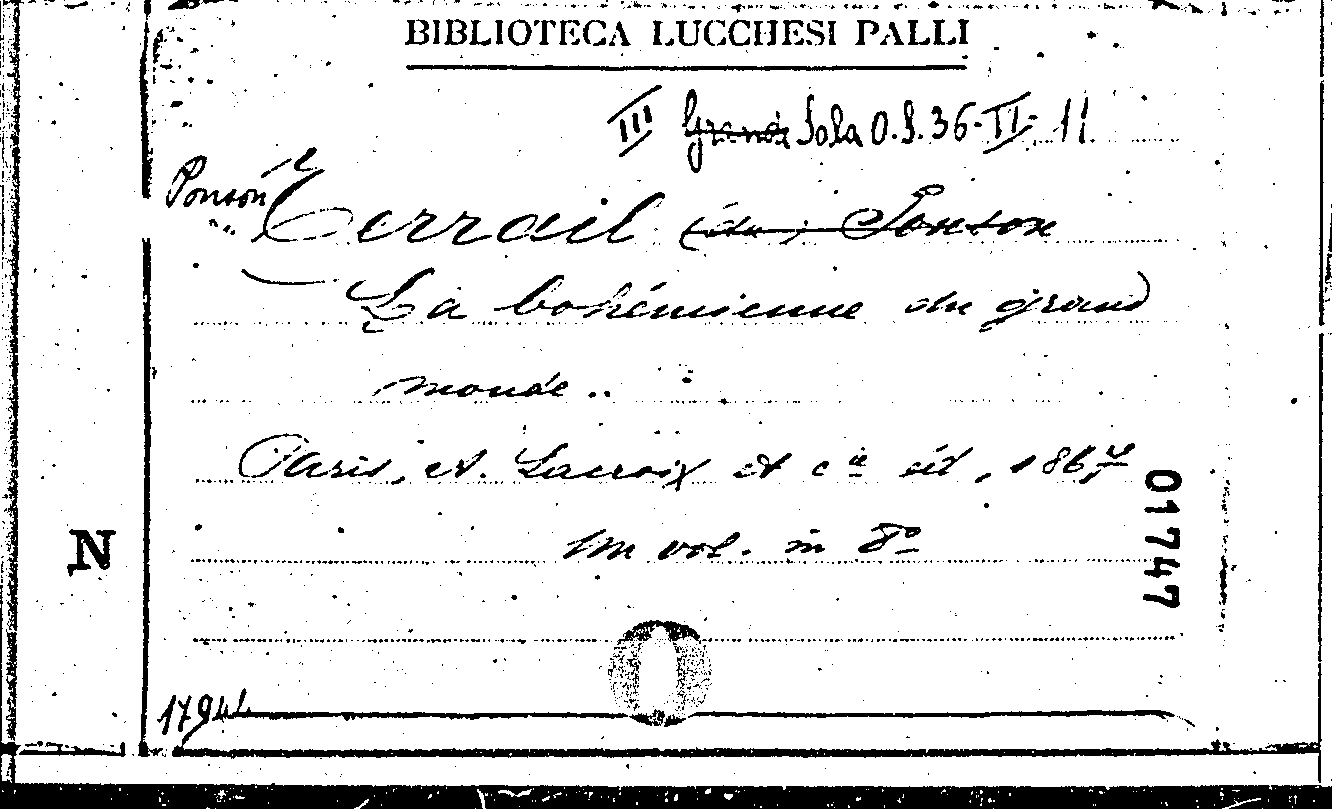 BIBLIOTECA LUCCHESI PALLI
III Grande Sala O.S. 36-II-11
Ponson
Terrail (du) Ponson
La bohémienne du grand
monde..
Paris, A. Lacroix et cie éd, 1867
Un vol. in 8º
01747
N
1794